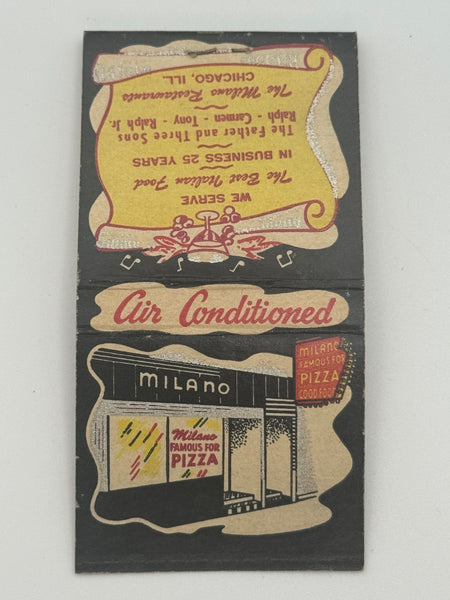 WE SERVE
The Best Italian Food
IN BUSINESS 25 YEARS
The Father and Three Sons
Ralph - Carmen - Tony - Ralph Jr.
The Milano Restaurants
CHICAGO, ILL.
Air Conditioned
MILANO
FAMOUS FOR
PIZZA
GOOD FOOD
MILANO
Milano
FAMOUS FOR
PIZZA